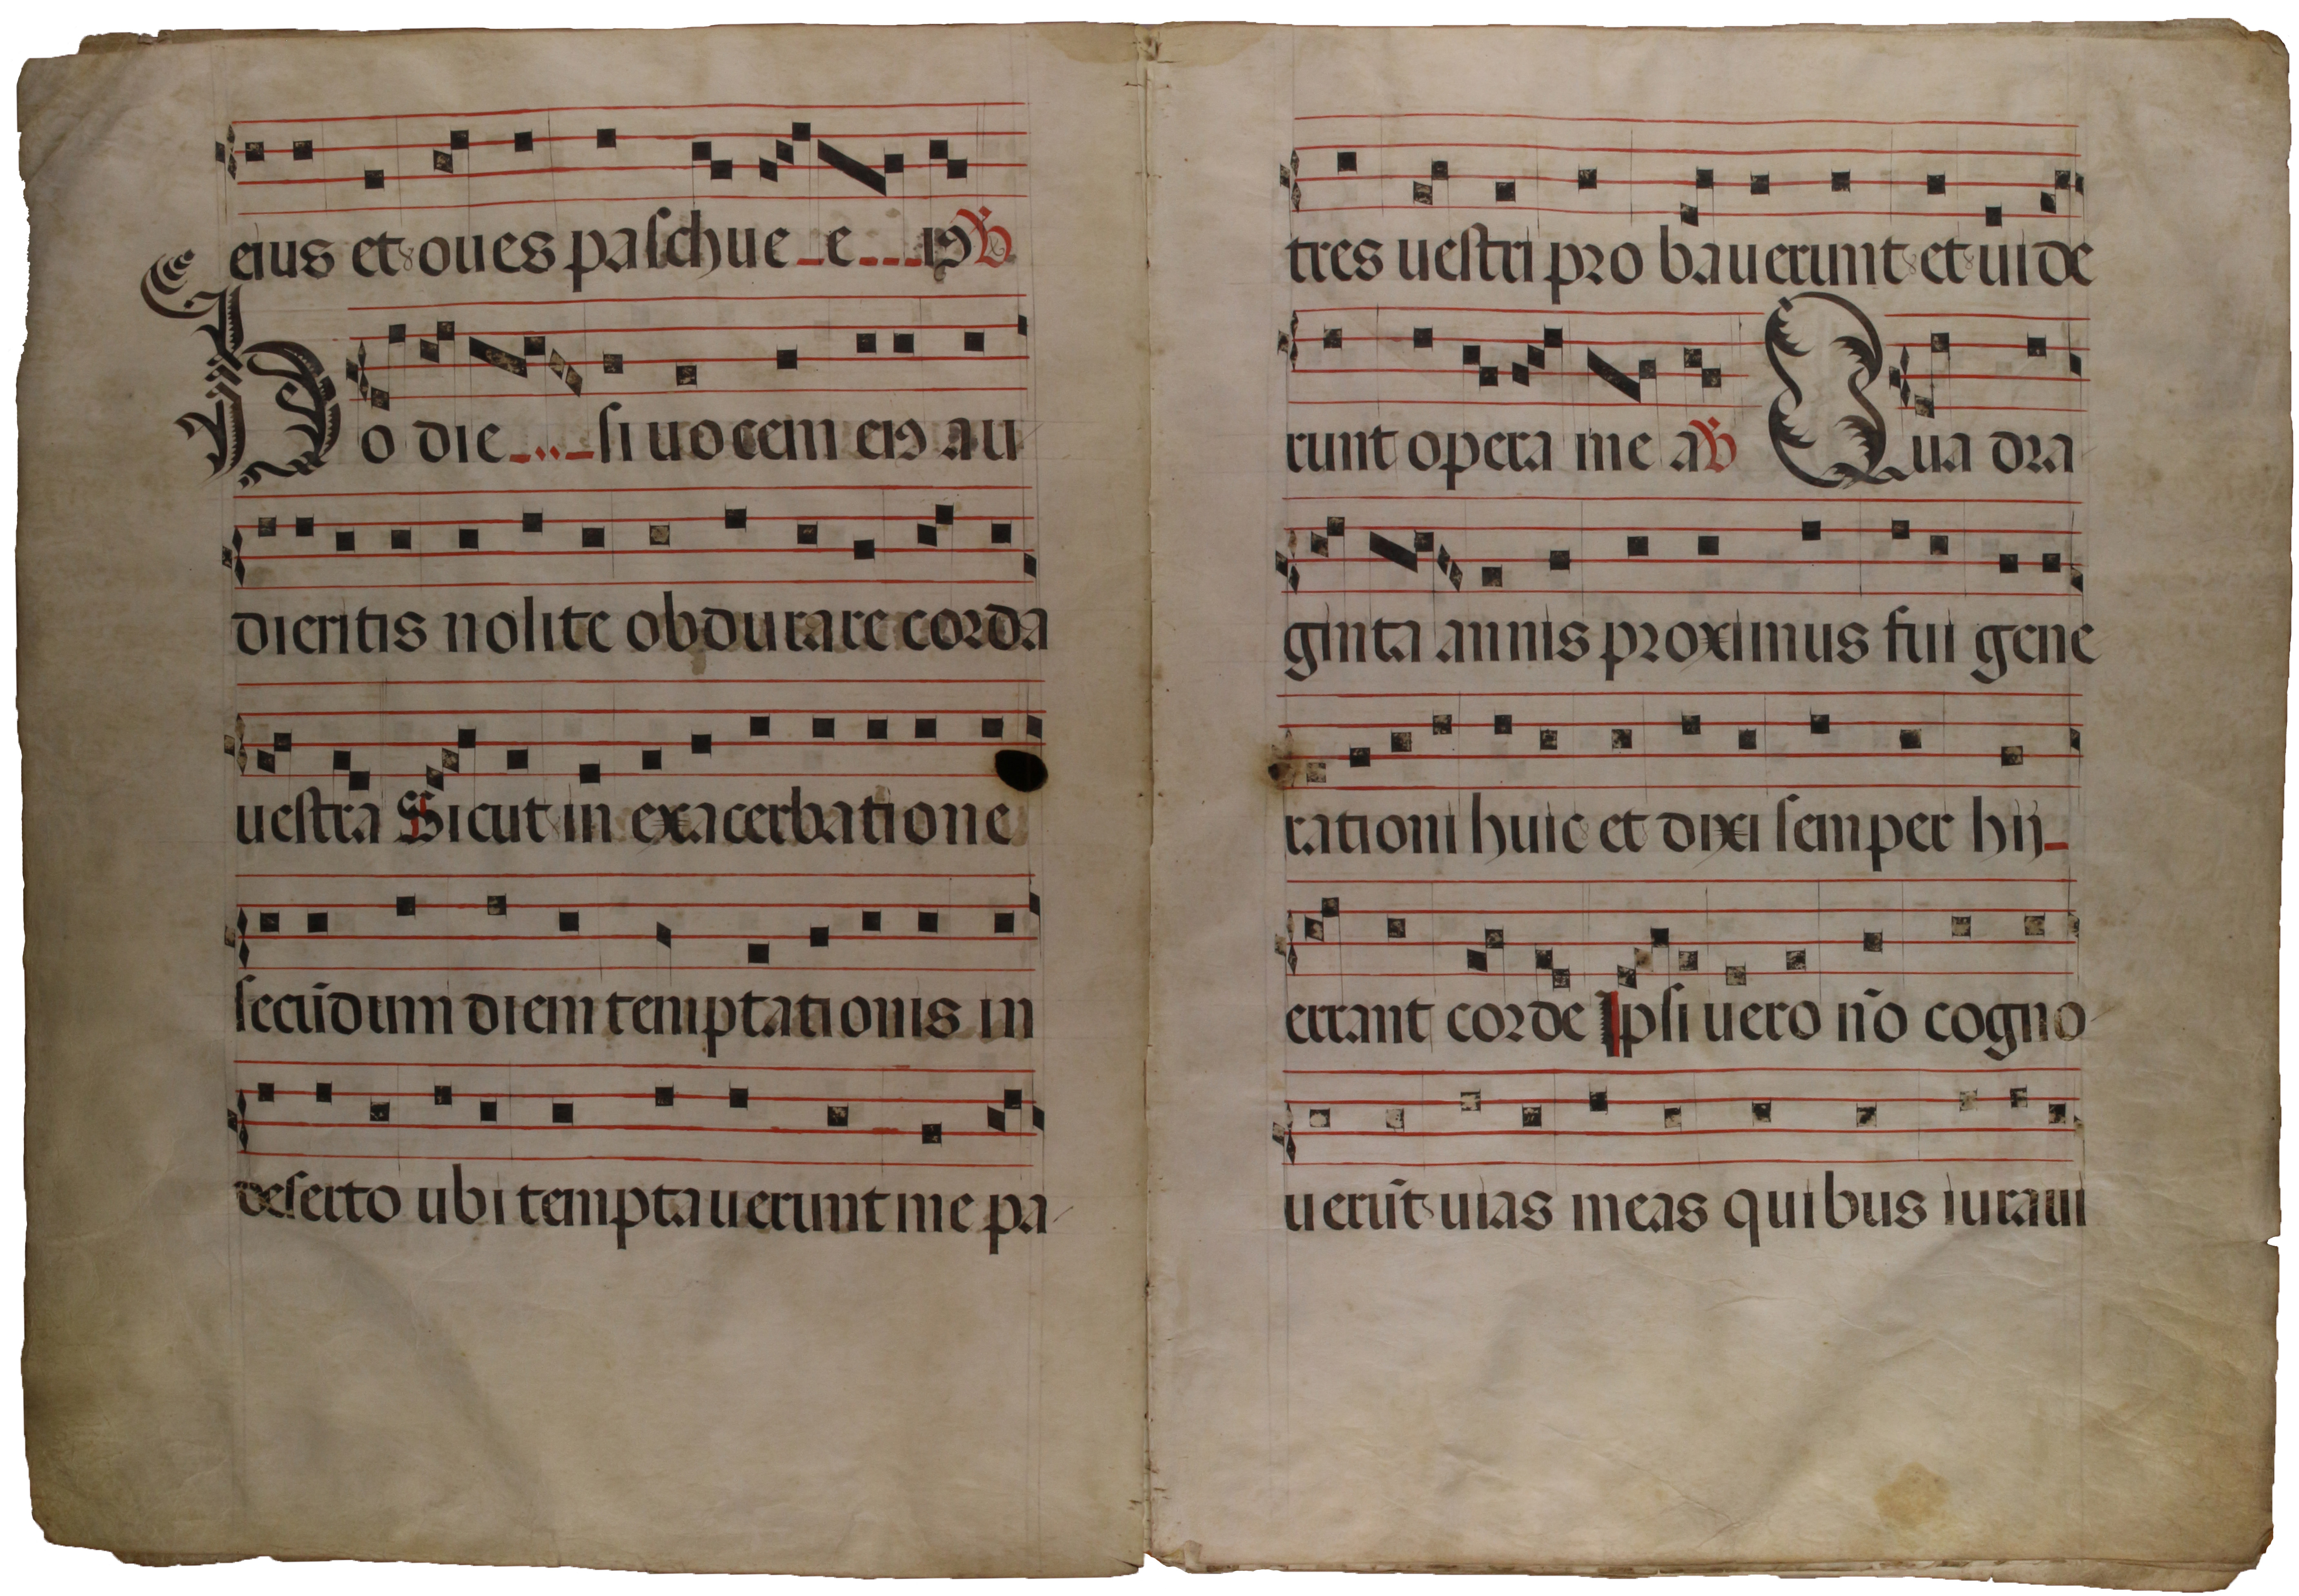 eius et oues paschue e is ℟
Ho die si uo cem eiꝯ au
dieritis nolite obdurare corda
uestra Sicut in exacerbatione
secūdum diem temptationis in
deserto ubi temptauerunt me pa
tres uestri pro bauerunt et uide
runt opera me a ℟ Qua dra
ginta annis proximus fui gene
rationi huic et dixi semper hij
errant corde Ipsi uero nō cogno
uerūt uias meas quibus iuraui